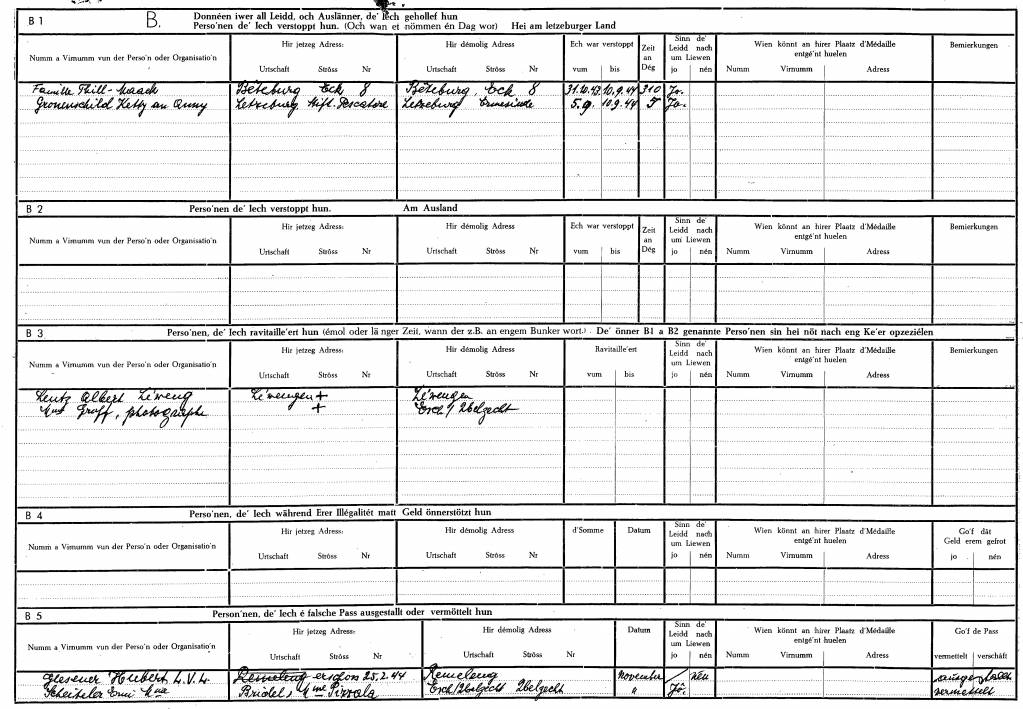 B 1 B. Donnéen iwer all Leidd, och Auslänner, de' Iech gehollef hun
Perso'nen de' Iech verstoppt hun. (Och wan et nömmen én Dag wor) Hei am letzeburger Land
Numm a Virnumm vun der Perso'n oder Organisatio'n Hir jetzeg Adress: Hir démolig Adress Ech war verstoppt Zeit an Dég Sinn de' Leidd nach um Liewen Wien könnt an hirer Plaatz d'Médaille entgé'nt huelen Bemierkungen
Urtschaft Ströss Nr Urtschaft Ströss Nr vum bis jo nén Numm Virnumm Adress
Famille Thill-Maack Béteburg Eck 8 Béteburg Eck 8 31.10.43 10.9.44 310 Jo.
Gronenschild Ketty an Anny Letzeburg Stift. Pescatore Letzeburg Ermesinde 5.9. 10.9.44 5 Jo.
B 2 Perso'nen de' Iech verstoppt hun. Am Ausland
Numm a Virnumm vun der Perso'n oder Organisatio'n Hir jetzeg Adress: Hir démolig Adress Ech war verstoppt Zeit an Dég Sinn de' Leidd nach um Liewen Wien könnt an hirer Plaatz d'Médaille entgé'nt huelen Bemierkungen
Urtschaft Ströss Nr Urtschaft Ströss Nr vum bis jo nén Numm Virnumm Adress
B 3 Perso'nen, de' Iech ravitaille'ert hun (émol oder länger Zeit, wann der z.B. an engem Bunker wort.) De' önner B1 a B2 genannte Perso'nen sin hei nöt nach eng Ke'er opzeziélen
Numm a Virnumm vun der Perso'n oder Organisatio'n Hir jetzeg Adress: Hir démolig Adress Ravitaille'ert Sinn de' Leidd nach um Liewen Wien könnt an hirer Plaatz d'Médaille entgé'nt huelen Bemierkungen
Urtschaft Ströss Nr Urtschaft Ströss Nr vum bis jo nén Numm Virnumm Adress
Hentz Albert Zéiweng Zéiwengen + Zéiwengen
Graff, photographe + Esch/Uelzecht
B 4 Perso'nen, de' Iech während Erer Illégalitét matt Geld önnerstötzt hun
Numm a Virnumm vun der Perso'n oder Organisatio'n Hir jetzeg Adress: Hir démolig Adress d'Somme Datum Sinn de' Leidd nach um Liewen Wien könnt an hirer Plaatz d'Médaille entgé'nt huelen Go'f dât Geld erem gefrot
Urtschaft Ströss Nr Urtschaft Ströss Nr jo nén Numm Virnumm Adress jo nén
B 5 Person'nen, de' Iech é falsche Pass ausgestallt oder vermöttelt hun
Numm a Virnumm vun der Perso'n oder Organisatio'n Hir jetzeg Adress: Hir démolig Adress Datum Sinn de' Leidd nach um Liewen Wien könnt an hirer Plaatz d'Médaille entgé'nt huelen Go'f de Pass
Urtschaft Ströss Nr Urtschaft Ströss Nr jo nén Numm Virnumm Adress vermettelt verschâft
Glesener Hubert L.V.L. Remeleng 25.2.44 Remeleng November nén
Bridel, Esch/Uelzecht Uelzecht " Jo. vermettelt